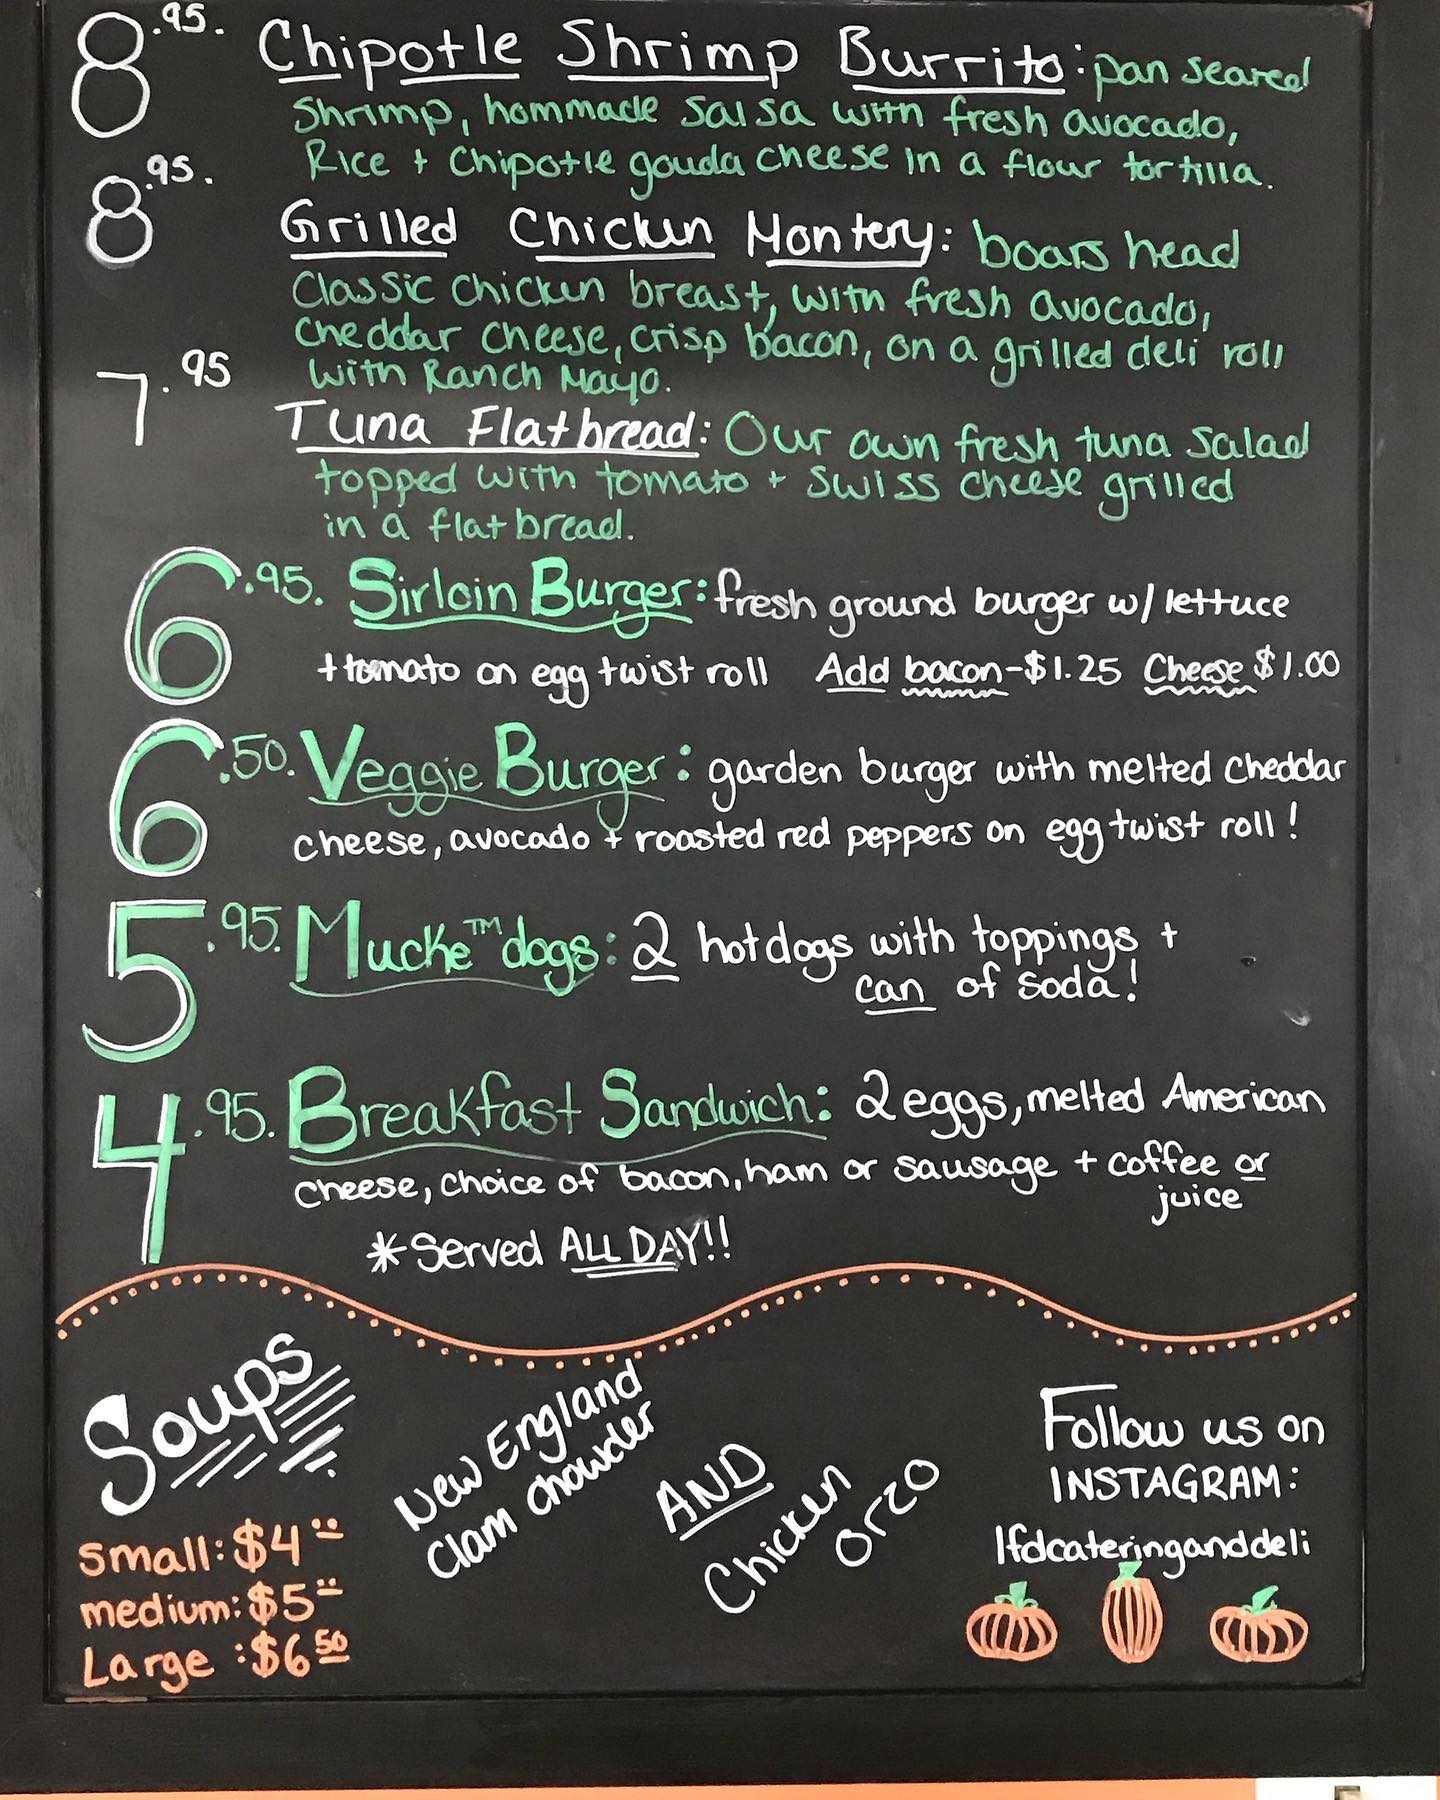 8.95. Chipotle Shrimp Burrito: pan seared
Shrimp, hommade salsa with fresh avocado,
Rice + Chipotle gouda cheese in a flour tortilla.
8.95. Grilled Chicken Montery: boars head
Classic chicken breast, with fresh avocado,
cheddar cheese, crisp bacon, on a grilled deli roll
with Ranch Mayo.
7.95 Tuna Flatbread: Our own fresh tuna salad
topped with tomato + swiss cheese grilled
in a flatbread.
6.95. Sirloin Burger: fresh ground burger w/ lettuce
+ tomato on egg twist roll Add bacon-$1.25 Cheese $1.00
6.50. Veggie Burger: garden burger with melted cheddar
cheese, avocado + roasted red peppers on egg twist roll!
5.95. Mucke™ dogs: 2 hotdogs with toppings +
can of soda!
4.95. Breakfast Sandwich: 2 eggs, melted American
cheese, choice of bacon, ham or sausage + coffee or
juice
*Served ALL DAY!!
Soups
Small: $4.00
medium: $5.00
Large: $6.50
New England
Clam chowder
AND
Chicken
orzo
Follow us on
INSTAGRAM:
lfdcateringanddeli